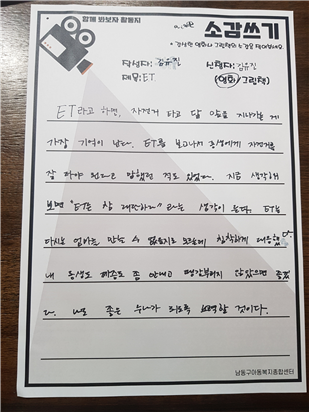 함께 봐보자 활동지
소감쓰기
* 감상한 영화나 그림책의 소감을 적어보세요.
작성자: 김유진
신청자: 김유진
제목: ET
(영화/그림책)
ET라고 하면, 자전거 타고 달 앞을 지나가는 게
가장 기억이 난다. ET를 보고나서 동생에게 자전거를
잘 타야 된다고 말했던 적도 있었다. 지금 생각해
보면 "ET는 참 대단하다" 라는 생각이 든다. ET는
다시는 엄마를 만날 수 없을지도 모르는데 침착하게 대응했다.
내 동생도 떼쓰는 좀 안내고 땡깡부리지 않았으면 좋겠
다. 나도 좋은 누나가 되도록 노력할 것이다.
남동구아동복지종합센터